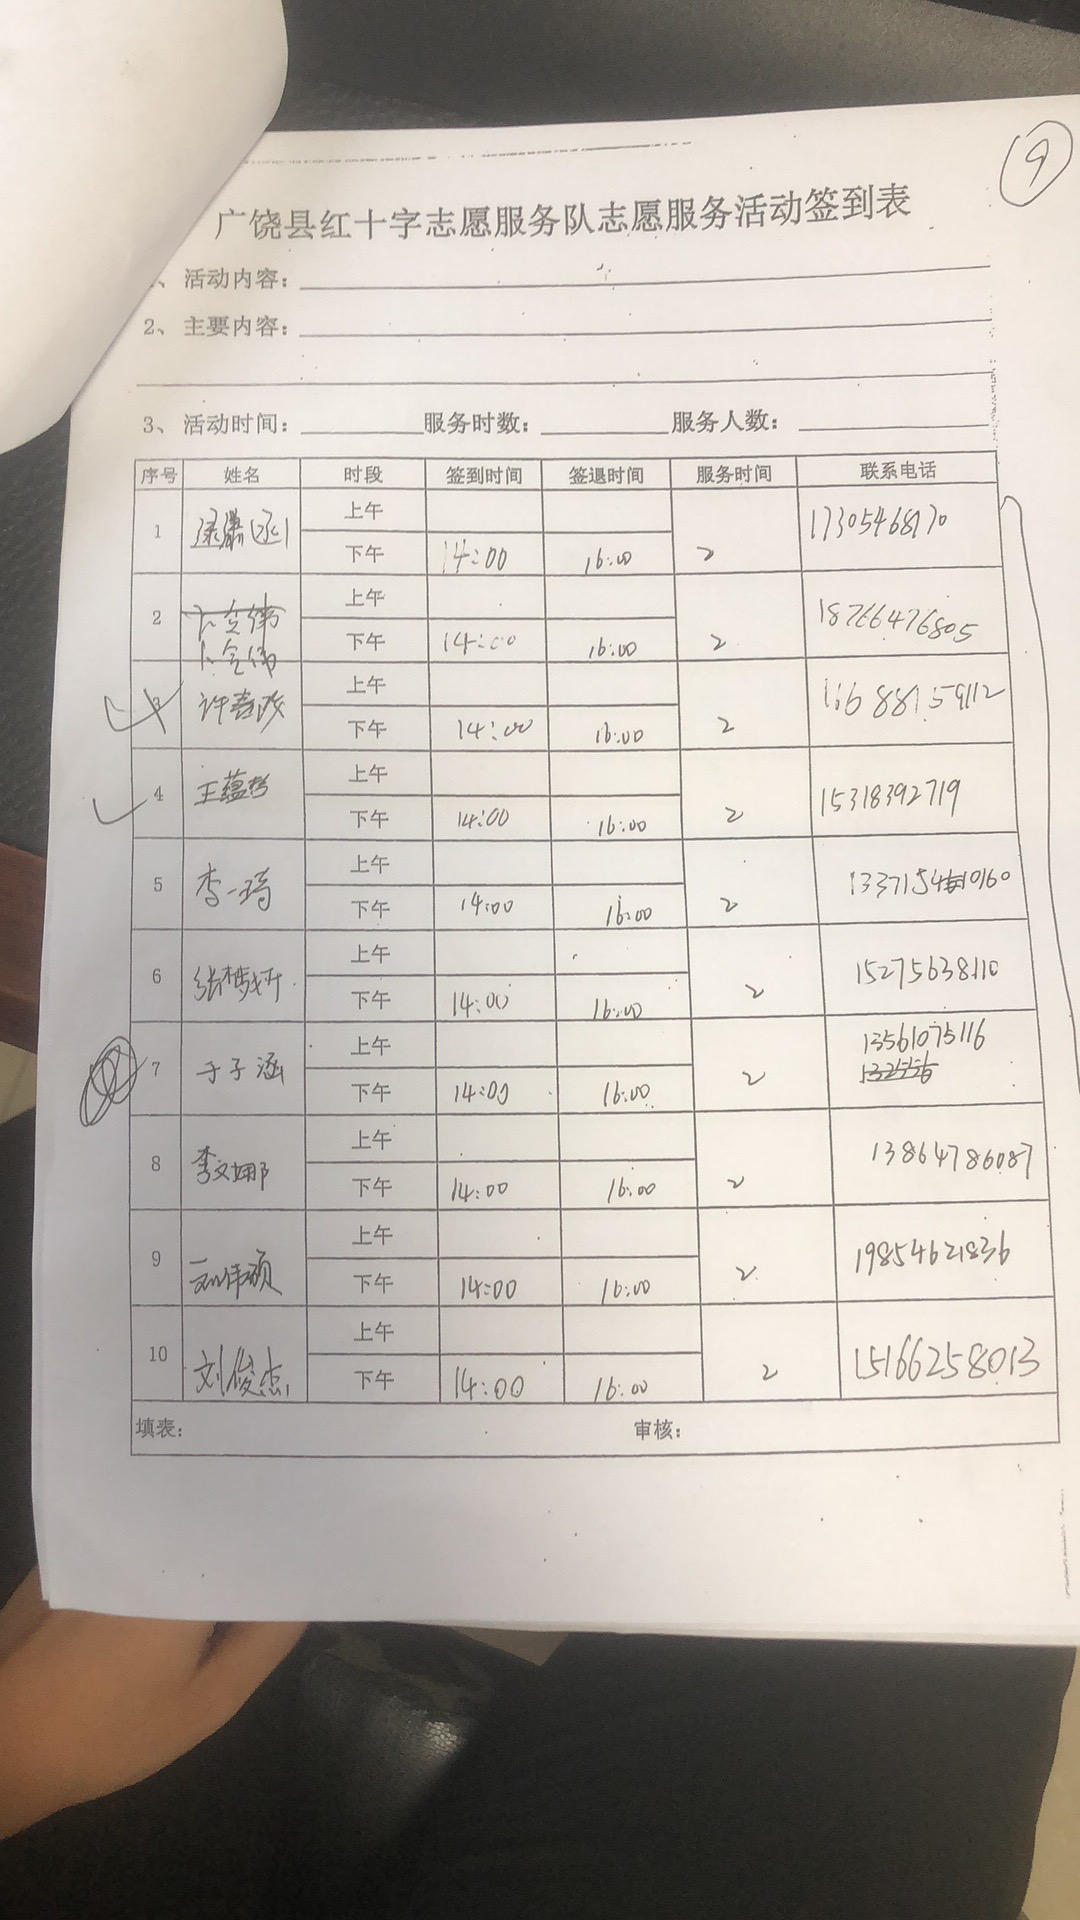 9
广饶县红十字志愿服务队志愿服务活动签到表
、活动内容:
2、主要内容:
3、活动时间: 服务时数: 服务人数:
序号 姓名 时段 签到时间 签退时间 服务时间 联系电话
1 上午 17305468170
下午 14:00 16:00 2
2 上午 18766476805
卜令伟 下午 14:00 16:00 2
3 上午
下午 14:00 16:00 2
4 王蕴哲 上午 15318392719
下午 14:00 16:00 2
5 李一琦 上午
下午 14:00 16:00 2
6 张梦妍 上午 15275638110
下午 14:00 16:00 2
7 于子涵 上午 13561075116
下午 14:00 16:00 2
8 李文娜 上午 13864786087
下午 14:00 16:00 2
9 刘伟硕 上午 19854621836
下午 14:00 16:00 2
10 刘俊杰 上午 15166258013
下午 14:00 16:00 2
填表: 审核: